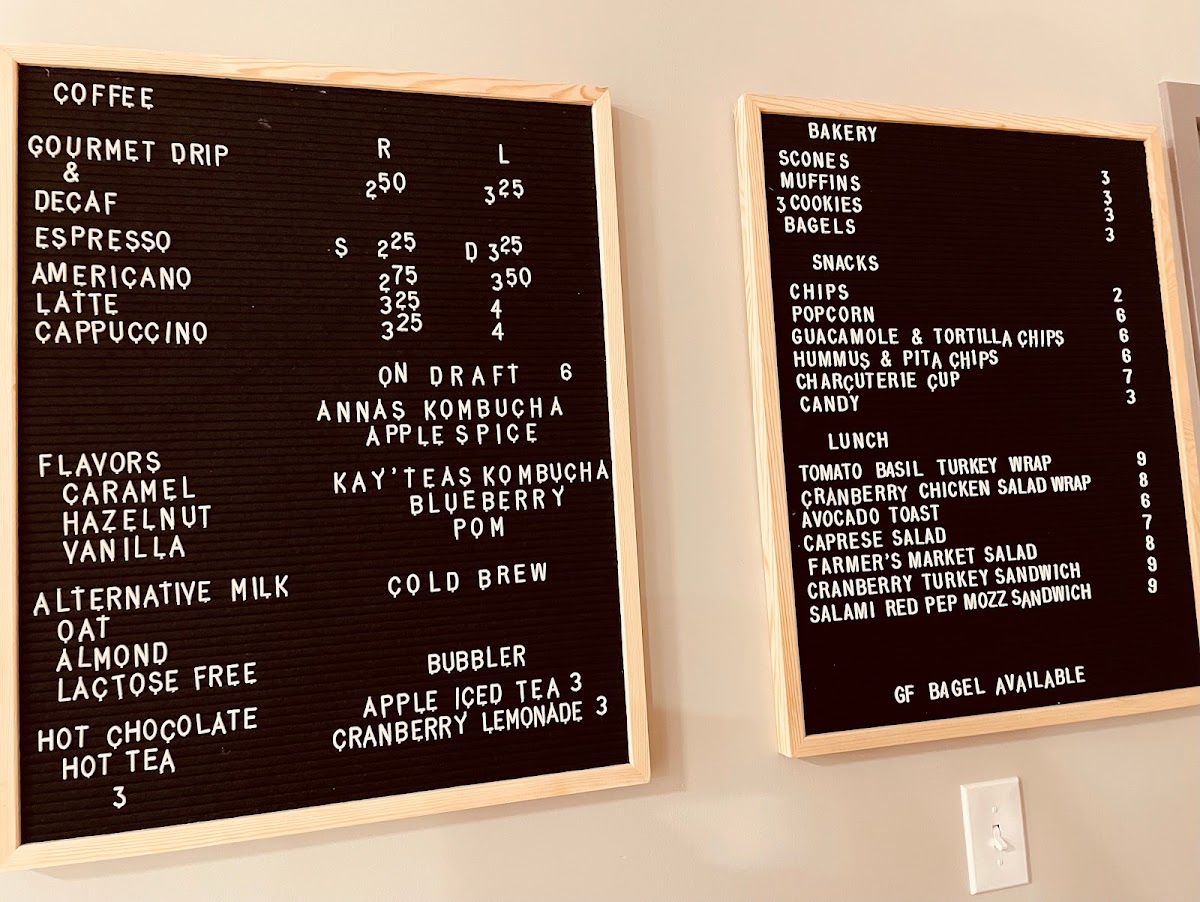 COFFEE
GOURMET DRIP R L
&
2 50 3 25
DECAF
ESPRESSO S 2 25 D 3 25
AMERICANO 2 75 3 50
LATTE 3 25 4
CAPPUCCINO 3 25 4
ON DRAFT 6
ANNAS KOMBUCHA
APPLE SPICE
KAY'TEAS KOMBUCHA
BLUEBERRY
POM
COLD BREW
BUBBLER
APPLE ICED TEA 3
CRANBERRY LEMONADE 3
FLAVORS
CARAMEL
HAZELNUT
VANILLA
ALTERNATIVE MILK
OAT
ALMOND
LACTOSE FREE
HOT CHOCOLATE
HOT TEA
3
BAKERY
SCONES 3
MUFFINS 3
3 COOKIES 3
BAGELS 3
SNACKS
CHIPS 2
POPCORN 6
GUACAMOLE & TORTILLA CHIPS 6
HUMMUS & PITA CHIPS 6
CHARCUTERIE CUP 7
CANDY 3
LUNCH
TOMATO BASIL TURKEY WRAP 9
CRANBERRY CHICKEN SALAD WRAP 8
AVOCADO TOAST 6
CAPRESE SALAD 7
FARMER'S MARKET SALAD 8
CRANBERRY TURKEY SANDWICH 9
SALAMI RED PEP MOZZ SANDWICH 9
GF BAGEL AVAILABLE